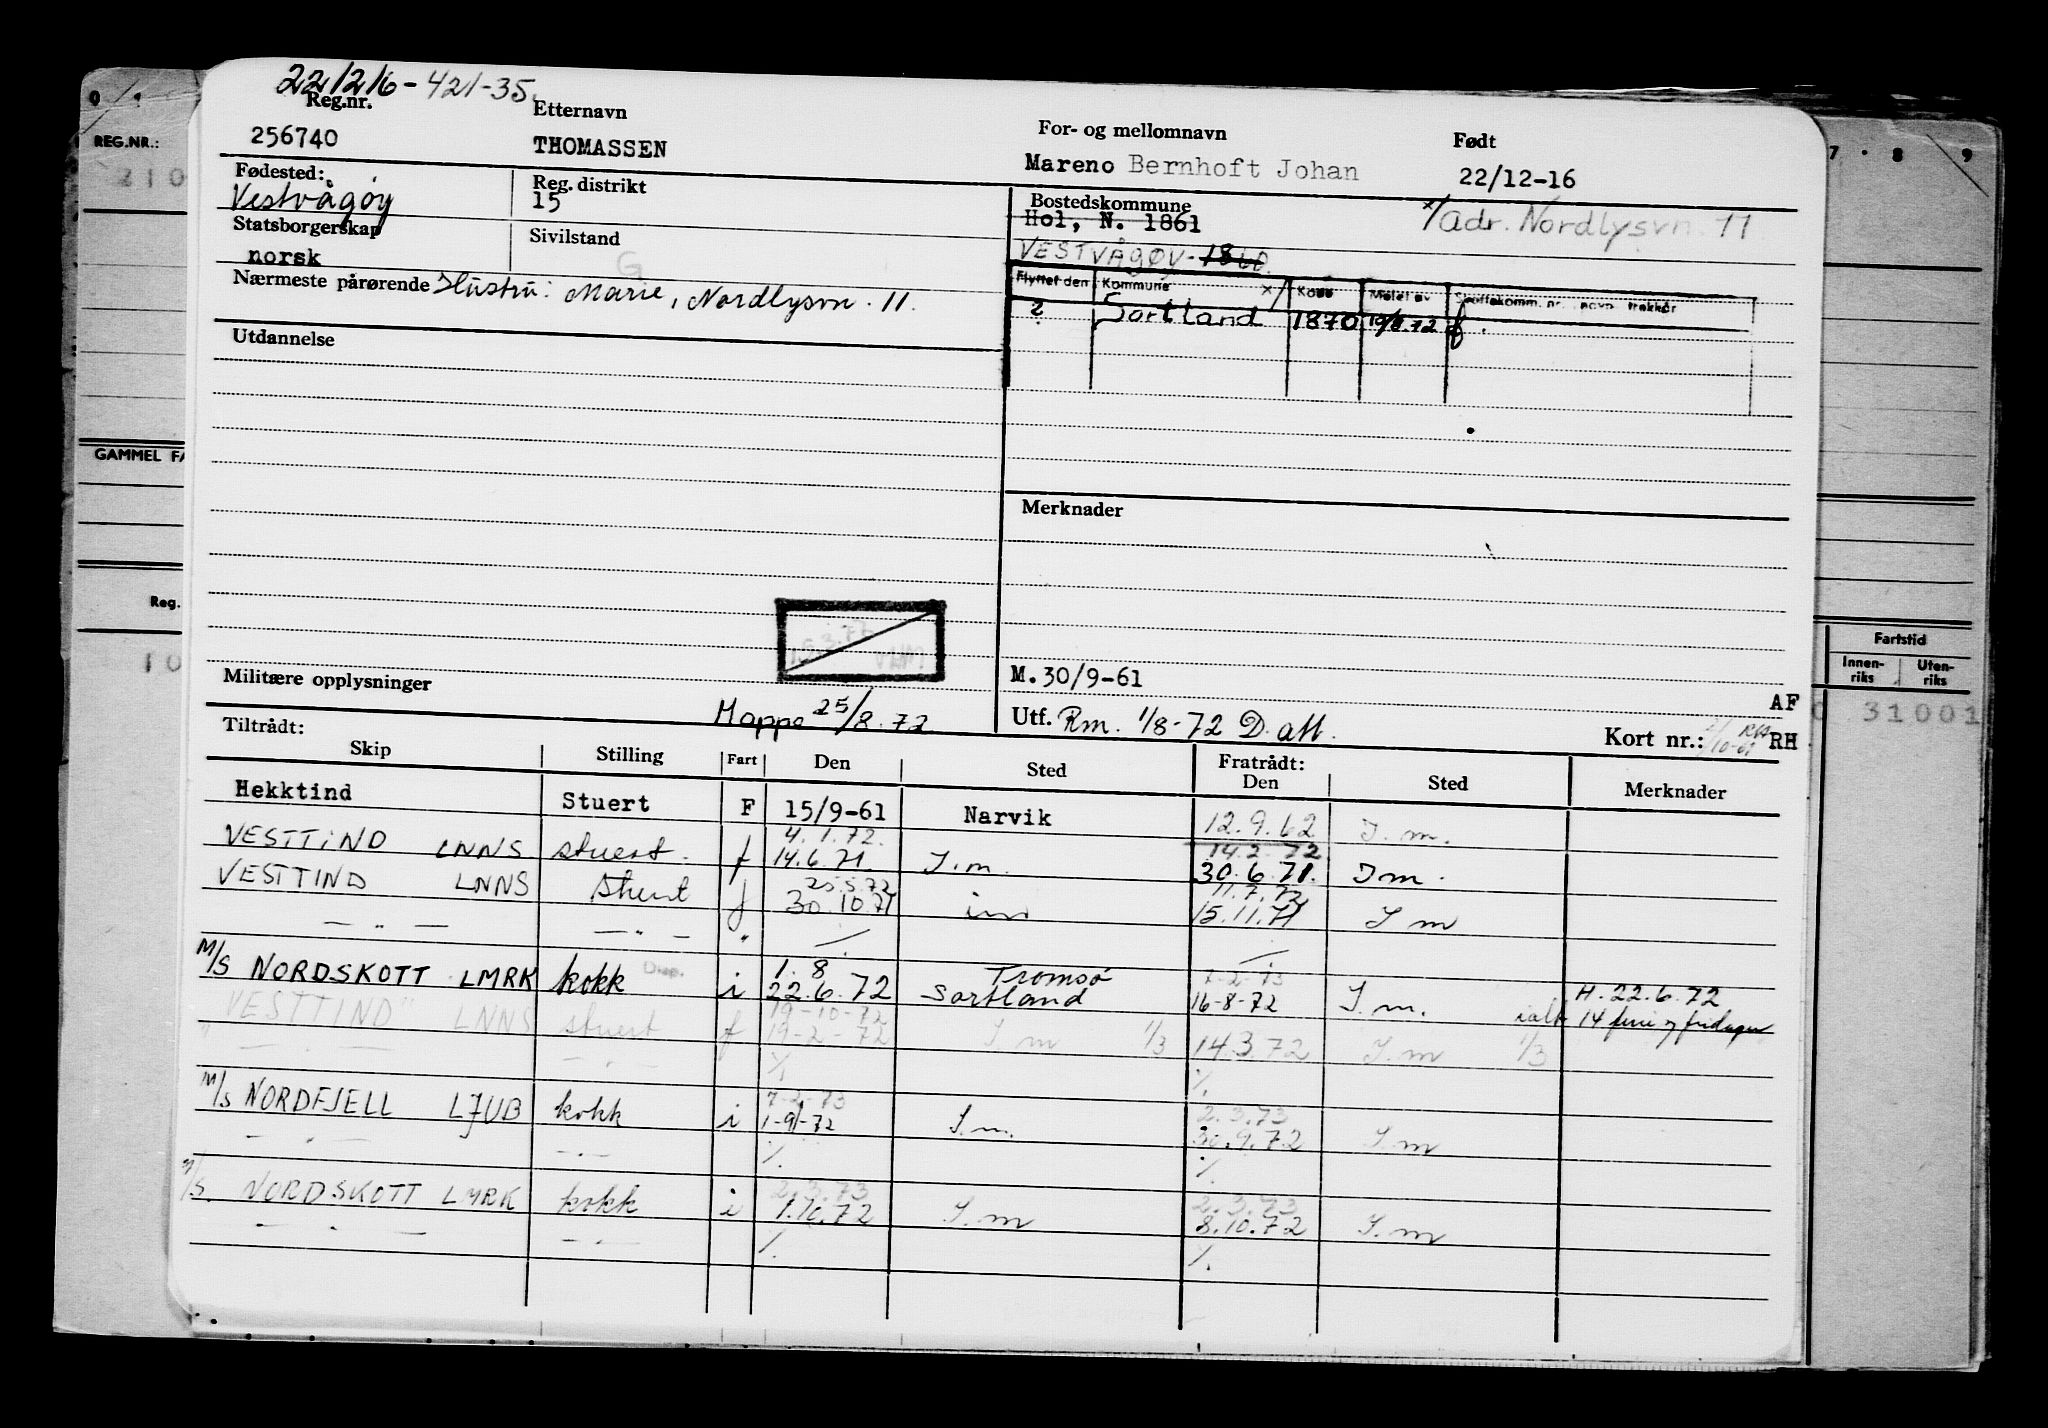 221216-421-35.
Reg.nr. Etternavn For- og mellomnavn Født
256740 THOMASSEN Mareno Bernhoft Johan 22/12-16
Fødested: Reg. distrikt Bostedskommune
Vestvågøy 15 Hol, N. 1861 x/ Adr. Nordlysvn. 11
Statsborgerskap Sivilstand
norsk G VESTVÅGØY - 1860
Nærmeste pårørende Hustru: Marie, Nordlysvn. 11.
Flyttet den Kommune x/ Kode Meldt av Skattekomm. nr. navn trekkår
? Sortland 1870 19/8.72
Utdannelse
Merknader
15.3.77
M.30/9-61
Militære opplysninger AF
Mappe 25/8.72 Utf. Rm. 1/8-72 D. att.
Kort nr.: RH
Tiltrådt: Fratrådt:
Skip Stilling Fart Den Sted Den Sted Merknader
Hekktind Stuert F 15/9-61 Narvik 12.9.62 I.m.
4.1.72. 14.2.72
VESTTIND LNNS stuert. f 14.6.71. I.m. 30.6.71. I m.
25.5.72 11.7.72
VESTTIND LNNS stuert f 30.10.71 im 15.11.71 I m
— " — — " — "
1.8. Tromsø 7-2-73
M/S NORDSKOTT LMRK kokk i 22.6.72 Sortland 16-8-72 I.m. H. 22.6.72
ialt 14 ferie og fridager
19-10-72
"VESTTIND" LNNS stuert f 19-2-72 I m 1/3 14.3.72 I m 1/3
" — " — — " — ⁒ ⁒
7-2-73 2.3.73
M/S NORDFJELL LJUB kokk i 1-9-72 I.m. 30.9.72 I m
— " — — " — ⁒ ⁒
2.3.73 2.3.73
M/S. NORDSKOTT LMRK kokk i 1.10.72 I.m 8.10.72 I.m
— " — — " — ⁒ ⁒
REG.NR.:
210
GAMMEL FA
Reg.
10
7 8 9
Fartstid
Innen-riks Uten-riks
31001